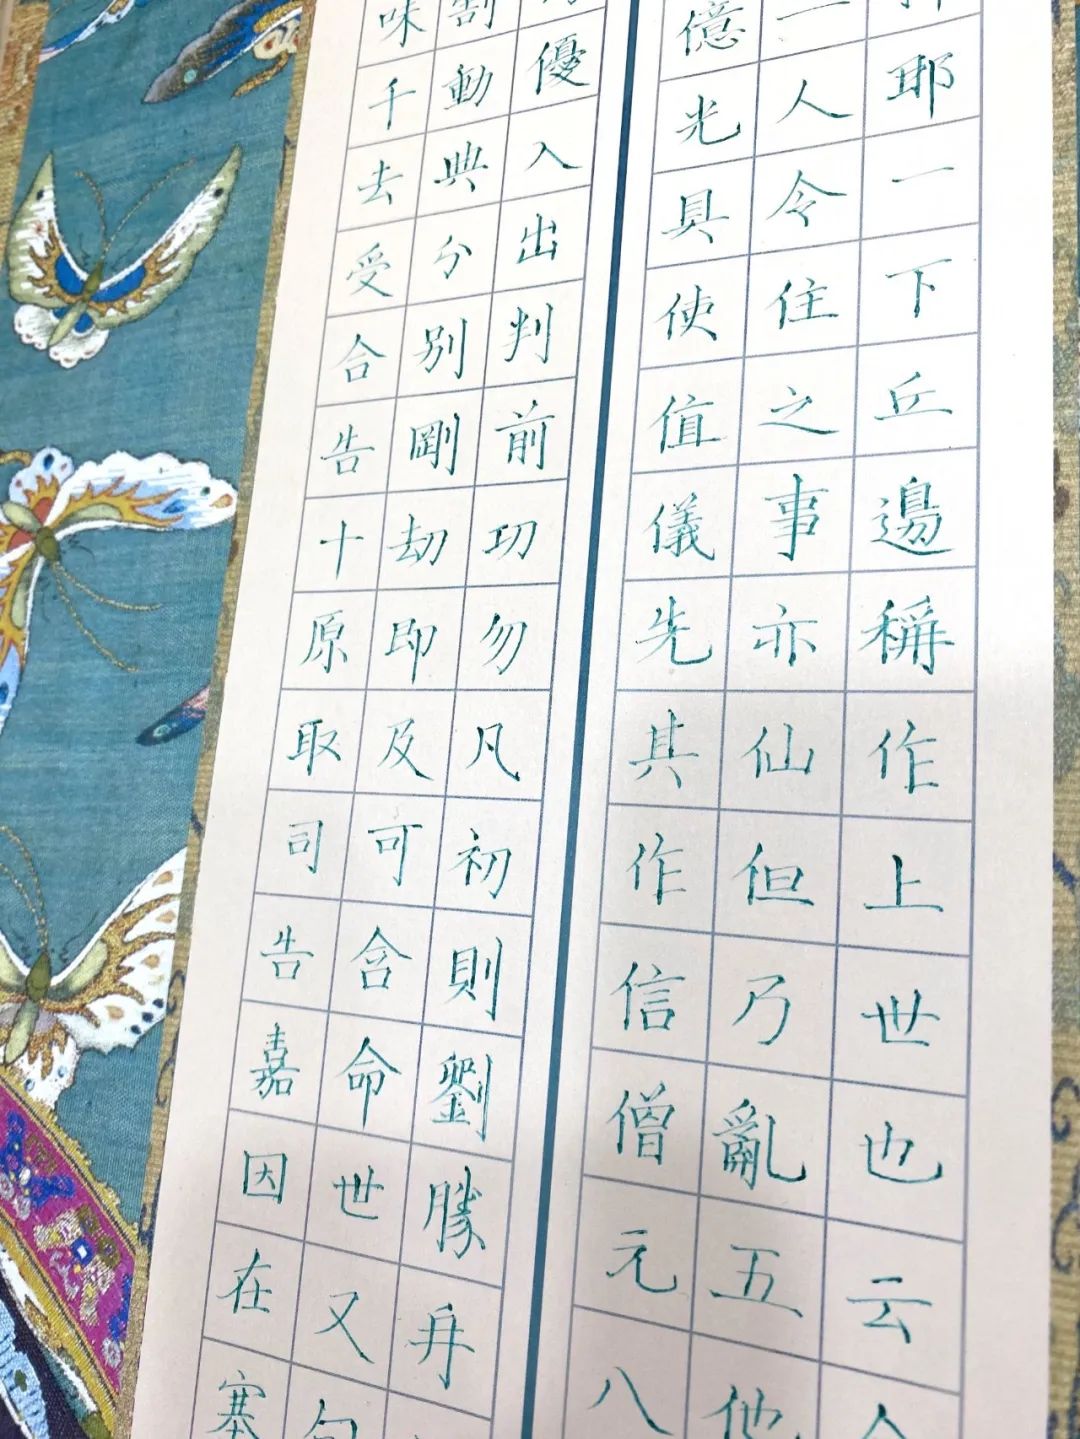 耶一下丘邊稱作上世也云
一人令住之事亦仙但乃亂五他
億光具使值儀先其作信僧元八
優入出判前功勿凡初則劉勝再
割動典分別剛劫即及可含命世又句
味千去受合告十原取司告嘉因在塞